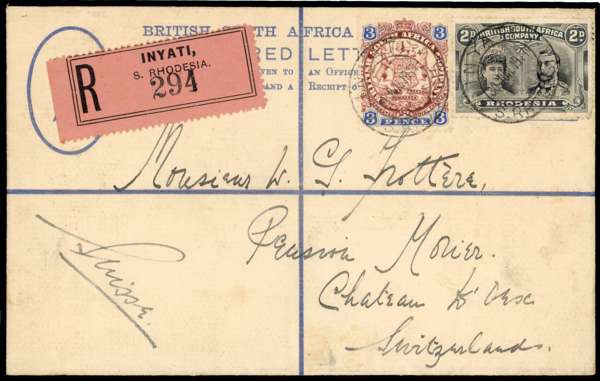 BRITISH SOUTH AFRICA
RED LETT
VEN TO AN OFFIC
AND A RECEIPT O
R
INYATI,
S. RHODESIA.
294
3 3
SOUTH AFRICA COMPANY
3 PENCE 3
2D BRITISH SOUTH AFRICA COMPANY 2D
RHODESIA
Monsieur W. G.
Pension Morier.
Chateau D'Oex
Switzerland.
Suisse.